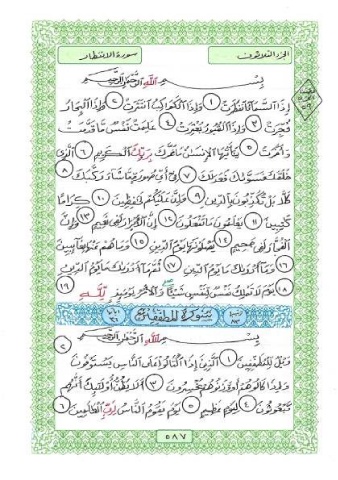 الجزء الثلاثون
سورة الانفطار
بِسْمِ اللَّهِ الرَّحْمَٰنِ الرَّحِيمِ
إِذَا السَّمَاءُ انْفَطَرَتْ ١ وَإِذَا الْكَوَاكِبُ انْتَثَرَتْ ٢ وَإِذَا الْبِحَارُ
فُجِّرَتْ ٣ وَإِذَا الْقُبُورُ بُعْثِرَتْ ٤ عَلِمَتْ نَفْسٌ مَا قَدَّمَتْ
وَأَخَّرَتْ ٥ يَا أَيُّهَا الْإِنْسَانُ مَا غَرَّكَ بِرَبِّكَ الْكَرِيمِ ٦ الَّذِي
خَلَقَكَ فَسَوَّاكَ فَعَدَلَكَ ٧ فِي أَيِّ صُورَةٍ مَا شَاءَ رَكَّبَكَ ٨
كَلَّا بَلْ تُكَذِّبُونَ بِالدِّينِ ٩ وَإِنَّ عَلَيْكُمْ لَحَافِظِينَ ١٠ كِرَامًا
كَاتِبِينَ ١١ يَعْلَمُونَ مَا تَفْعَلُونَ ١٢ إِنَّ الْأَبْرَارَ لَفِي نَعِيمٍ ١٣ وَإِنَّ
الْفُجَّارَ لَفِي جَحِيمٍ ١٤ يَصْلَوْنَهَا يَوْمَ الدِّينِ ١٥ وَمَا هُمْ عَنْهَا بِغَائِبِينَ
١٦ وَمَا أَدْرَاكَ مَا يَوْمُ الدِّينِ ١٧ ثُمَّ مَا أَدْرَاكَ مَا يَوْمُ الدِّينِ
١٨ يَوْمَ لَا تَمْلِكُ نَفْسٌ لِنَفْسٍ شَيْئًا وَالْأَمْرُ يَوْمَئِذٍ لِلَّهِ ١٩
سورة المطففين
بِسْمِ اللَّهِ الرَّحْمَٰنِ الرَّحِيمِ
وَيْلٌ لِلْمُطَفِّفِينَ ١ الَّذِينَ إِذَا اكْتَالُوا عَلَى النَّاسِ يَسْتَوْفُونَ ٢
وَإِذَا كَالُوهُمْ أَوْ وَزَنُوهُمْ يُخْسِرُونَ ٣ أَلَا يَظُنُّ أُولَٰئِكَ أَنَّهُمْ
مَبْعُوثُونَ ٤ لِيَوْمٍ عَظِيمٍ ٥ يَوْمَ يَقُومُ النَّاسُ لِرَبِّ الْعَالَمِينَ ٦
٥٨٧